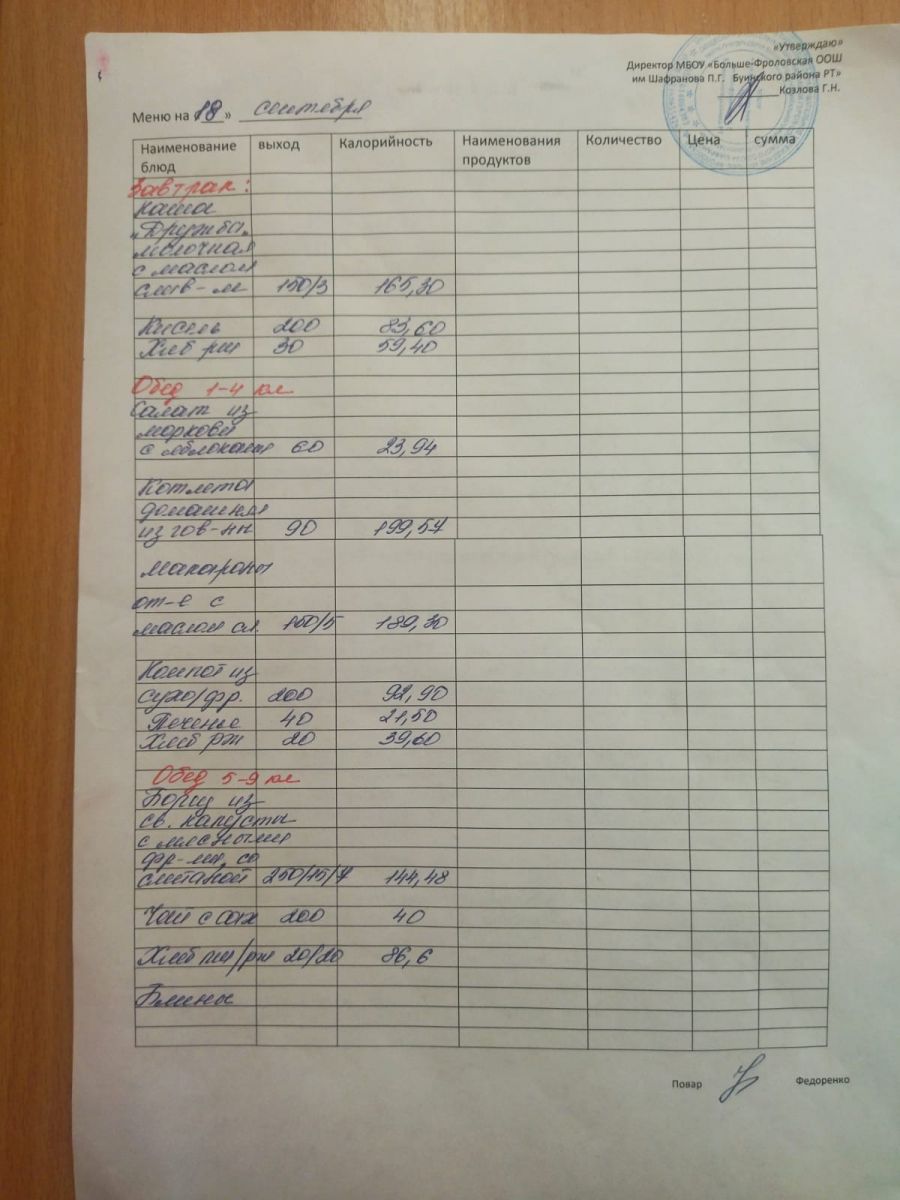 «Утверждаю»
Директор МБОУ «Больше-Фроловская ООШ
им Шафранова П.Г. Буинского района РТ»
Козлова Г.Н.
Меню на 18 » сентября
Наименование блюд выход Калорийность Наименования продуктов Количество Цена сумма
Завтрак:
Каша
„Дружба„
молочная
с маслом
слив-м 150/3 165,30
Кисель 200 83,60
Хлеб пш 30 59,40
Обед 1-4 кл
Салат из
моркови
с яблоками 60 23,94
Котлета
домашняя
из гов-ны 90 199,57
Макароны
от-е с
маслом сл. 150/5 189,30
Компот из
сухо/фр. 200 92,90
Печенье 40 21,50
Хлеб рж 20 39,60
Обед 5-9 кл
Борщ из
св. капусты
с мясными
фр-ми, со
сметаной 250/15/7 144,48
Чай с сах 200 40
Хлеб пш/рж 20/20 86,6
Блины
Повар Федоренко